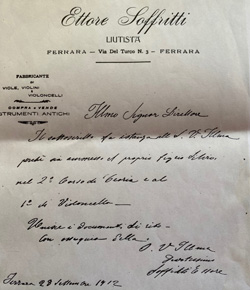 Ettore Soffritti
LIUTISTA
FERRARA – Via Del Turco N. 3 – FERRARA
FABBRICANTE
di
VIOLE, VIOLINI
e
VIOLONCELLI
COMPRA e VENDE
STRUMENTI ANTICHI
Illmo Signor Direttore
Il sottoscritto fa istanza alla S. V. Illma
perchè sia ammesso il proprio figlio
nel 2° Corso di Teoria e al
1° di Violoncello.
Unisce i documenti di rito
Con ossequio
S. V. Illma
Soffritti Ettore
Ferrara 28 Settembre 1912